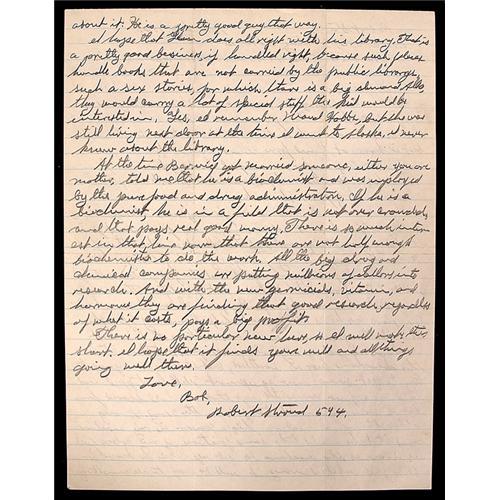 about it. He is a pretty good guy that way.
I hope that does all right with his library. That is
a pretty good business, if handled right, because such places
handle books that are not carried by the public library,
such as sex stories, for which, there is a big demand. Also
they would carry a lot of special stuff this kid would be
interested in. Yes, I remember but she was
still living next door at the time I went to Alaska. I never
knew about the library.
At the time got married someone, either you or
mother, told me that he is a biochemist and was employed
by the pure food and drug administration. If he is a
biochemist he is in a field that is not over crowded,
and that pays real good money. There is so much inter-
est in that line now that there are not half enough
biochemists to do the work. All the big drug and
chemical companies are putting millions of dollars into
research. And with the new germicides, and
hormones they are finding that good research, regardless
of what it costs, pays a big profit.
There is no particular news here, so I will make this
short. I hope that it finds you well and all things
going well there.
Love,
Bob,
Robert Stroud 594.